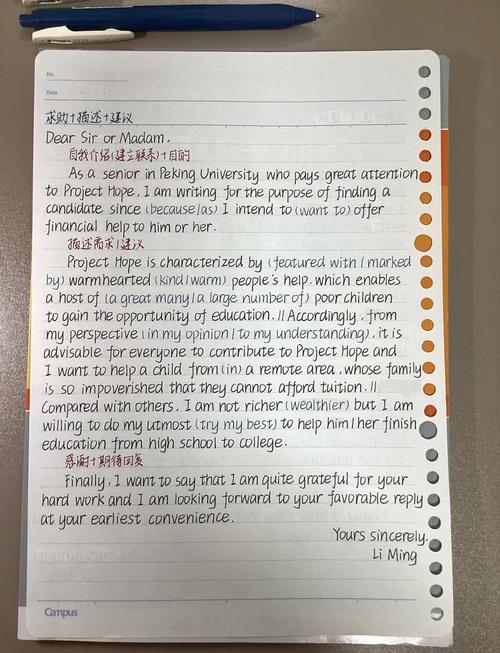 No.
Date
求助+描述+建议
Dear Sir or Madam,
自我介绍(建立联系)+目的
As a senior in Peking University who pays great attention
to Project Hope, I am writing for the purpose of finding a
candidate since (because/as) I intend to (want to) offer
financial help to him or her.
描述需求/建议
Project Hope is characterized by (featured with/marked
by) warmhearted (kind/warm) people's help, which enables
a host of (a great many/a large number of) poor children
to gain the opportunity of education. // Accordingly, from
my perspective (in my opinion/to my understanding), it is
advisable for everyone to contribute to Project Hope and
I want to help a child from (in) a remote area, whose family
is so impoverished that they cannot afford tuition. //
Compared with others, I am not richer (wealthier) but I am
willing to do my utmost (try my best) to help him/her finish
education from high school to college.
感谢+期待回复
Finally, I want to say that I am quite grateful for your
hard work and I am looking forward to your favorable reply
at your earliest convenience.
Yours sincerely,
Li Ming
Campus